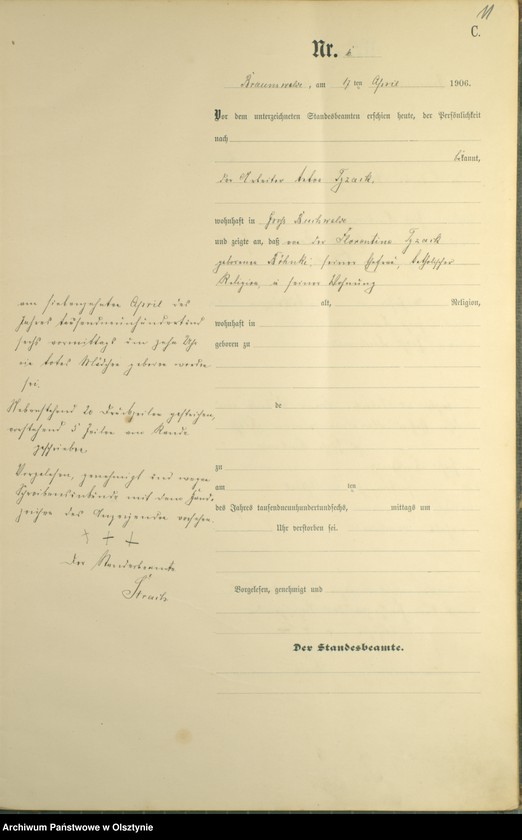 11
C.
Nr. 6
Braunswalde, am 17ten April 1906.
Vor dem unterzeichneten Standesbeamten erschien heute, der Persönlichkeit
nach
bekannt,
der Arbeiter
wohnhaft in Groß Buchwalde
und zeigte an, daß von der Florentine
geborenen seiner Ehefrau, katholischer
Religion, in seiner Wohnung
alt, Religion,
wohnhaft in
geboren zu
am siebenzehnten April des
Jahres tausendneunhundertund
sechs vormittags um zehn Uhr
ein totes Mädchen geboren worden
sei.
Nebenstehend 20 Druckzeilen gestrichen,
vorstehend 5 Zeilen am Rande
geschrieben.
de
zu
am ten
des Jahres tausendneunhundertundsechs, mittags um
Uhr verstorben sei.
Vorgelesen, genehmigt und wegen
Schreibensunkunde mit dem Hand-
zeichen des Anzeigenden versehen.
+ + +
Der Standesbeamte
Vorgelesen, genehmigt und
Der Standesbeamte.
Archiwum Państwowe w Olsztynie